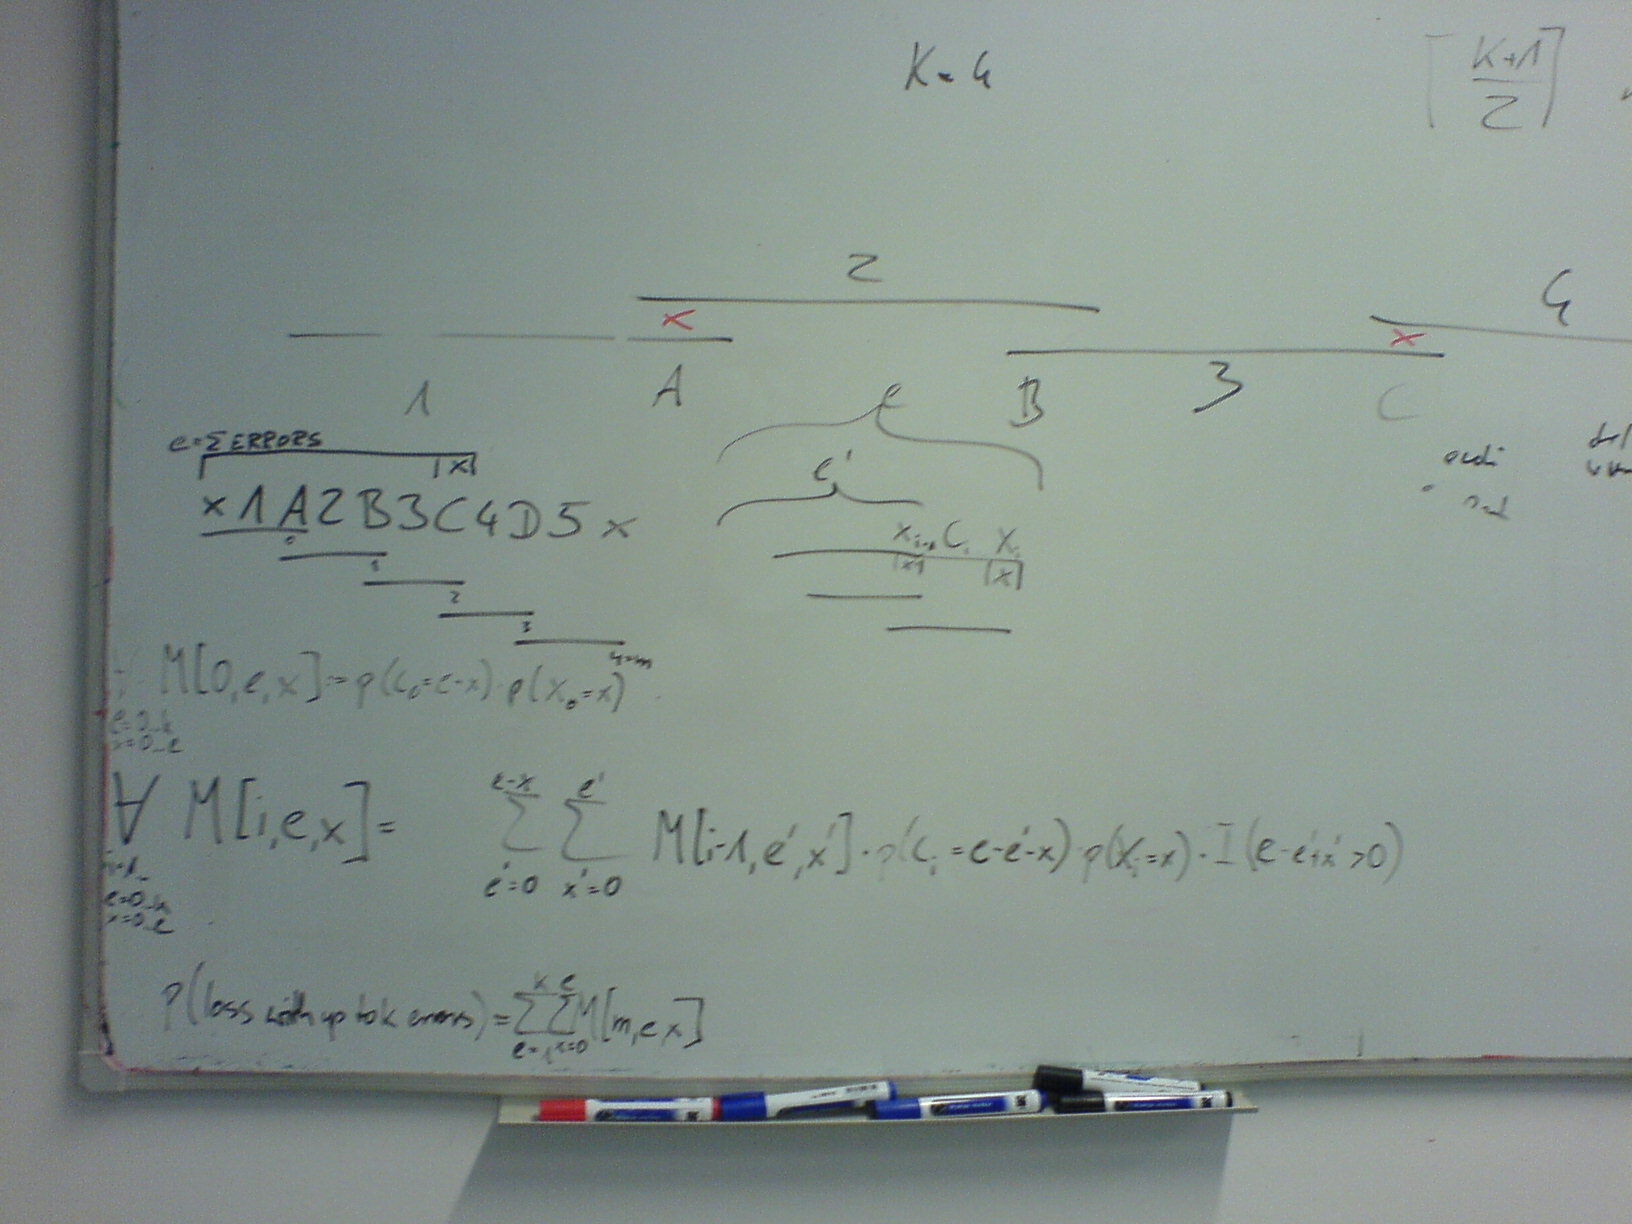 K = 4
⌈(K+1)/2⌉
2
4
x
x
1 A B 3 C
e
e = Σ ERRORS
|x|
e'
x 1 A 2 B 3 C 4 D 5 x
0
1
2
3
4=m
X_{i-1} C_i X_i
|x'| |x|
M[0,e,x] = p(C_0=e-x)·p(X_0=x)
e=0..k
x=0..e
∀ M[i,e,x] = Σ_{e'=0}^{e-x} Σ_{x'=0}^{e'} M[i-1,e',x']·p(C_i=e-e'-x)·p(X_i=x)·I(e-e'+x'>0)
e=0..k
x=0..e
p(loss with up to k errors) = Σ_{e=1}^{K} Σ_{x=0}^{e} M[m,e,x]